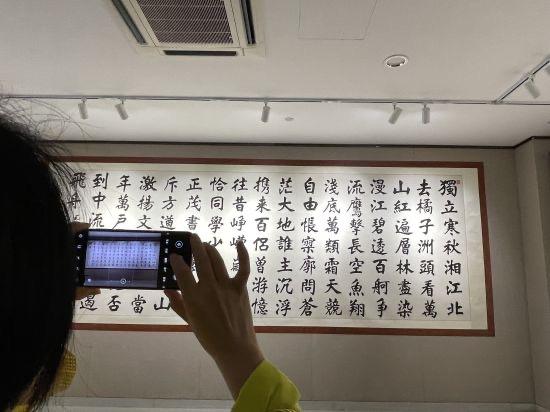 獨立寒秋湘江北
去橘子洲頭看萬
山紅遍層林盡染
漫江碧透百舸爭
流鷹擊長空魚翔
淺底萬類霜天競
自由悵寥廓問蒼
茫大地誰主沉浮
携来百侣曾游憶
往昔崢嶸歲
恰同學少
正茂書
斥方遒山
激揚文當
年萬戶否
到中流遏
飛舟